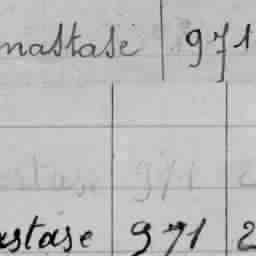 nastase 971
stase 971 2
astase 971 2